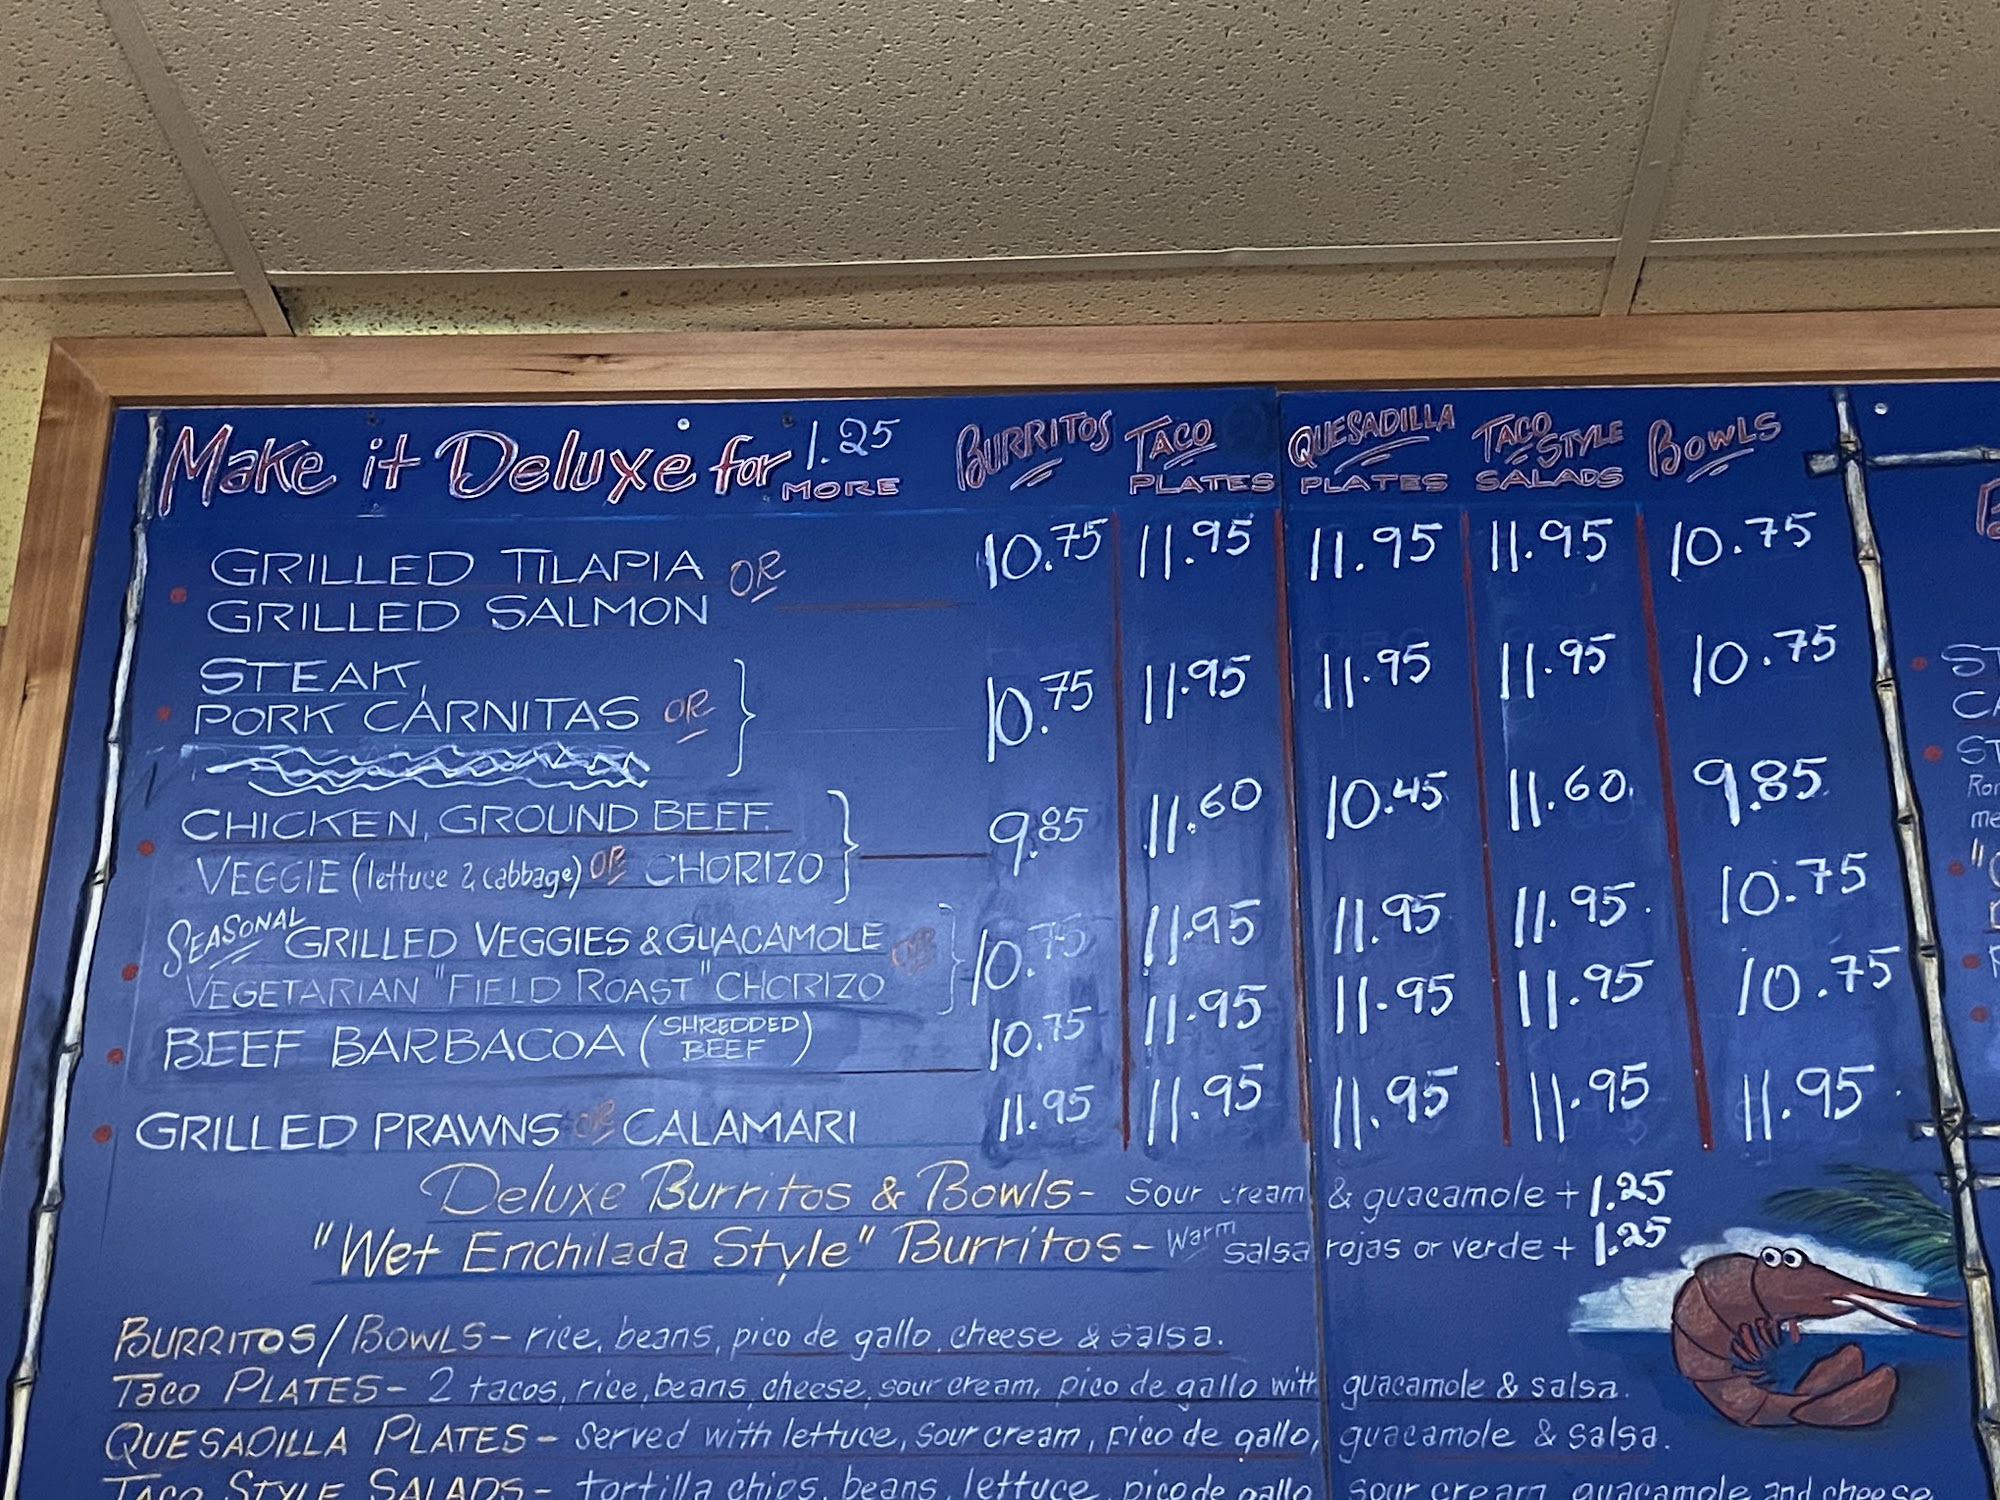 Make it Deluxe for 1.25 MORE
BURRITOS
TACO PLATES
QUESADILLA PLATES
TACO STYLE SALADS
BOWLS
GRILLED TILAPIA OR
GRILLED SALMON
10.75 11.95 11.95 11.95 10.75
STEAK,
PORK CARNITAS OR
10.75 11.95 11.95 11.95 10.75
CHICKEN, GROUND BEEF,
VEGGIE (lettuce & cabbage) OR CHORIZO
9.85 11.60 10.45 11.60 9.85
SEASONAL GRILLED VEGGIES & GUACAMOLE OR
VEGETARIAN "FIELD ROAST" CHORIZO
10.75 11.95 11.95 11.95 10.75
BEEF BARBACOA (SHREDDED BEEF)
10.75 11.95 11.95 11.95 10.75
GRILLED PRAWNS OR CALAMARI
11.95 11.95 11.95 11.95 11.95
Deluxe Burritos & Bowls- Sour cream & guacamole + 1.25
"Wet Enchilada Style" Burritos- Warm salsa rojas or verde + 1.25
BURRITOS/BOWLS- rice, beans, pico de gallo, cheese & salsa.
TACO PLATES- 2 tacos, rice, beans, cheese, sour cream, pico de gallo with guacamole & salsa.
QUESADILLA PLATES- served with lettuce, sour cream, pico de gallo, guacamole & salsa.
TACO STYLE SALADS- tortilla chips, beans, lettuce, pico de gallo, sour cream, guacamole and cheese